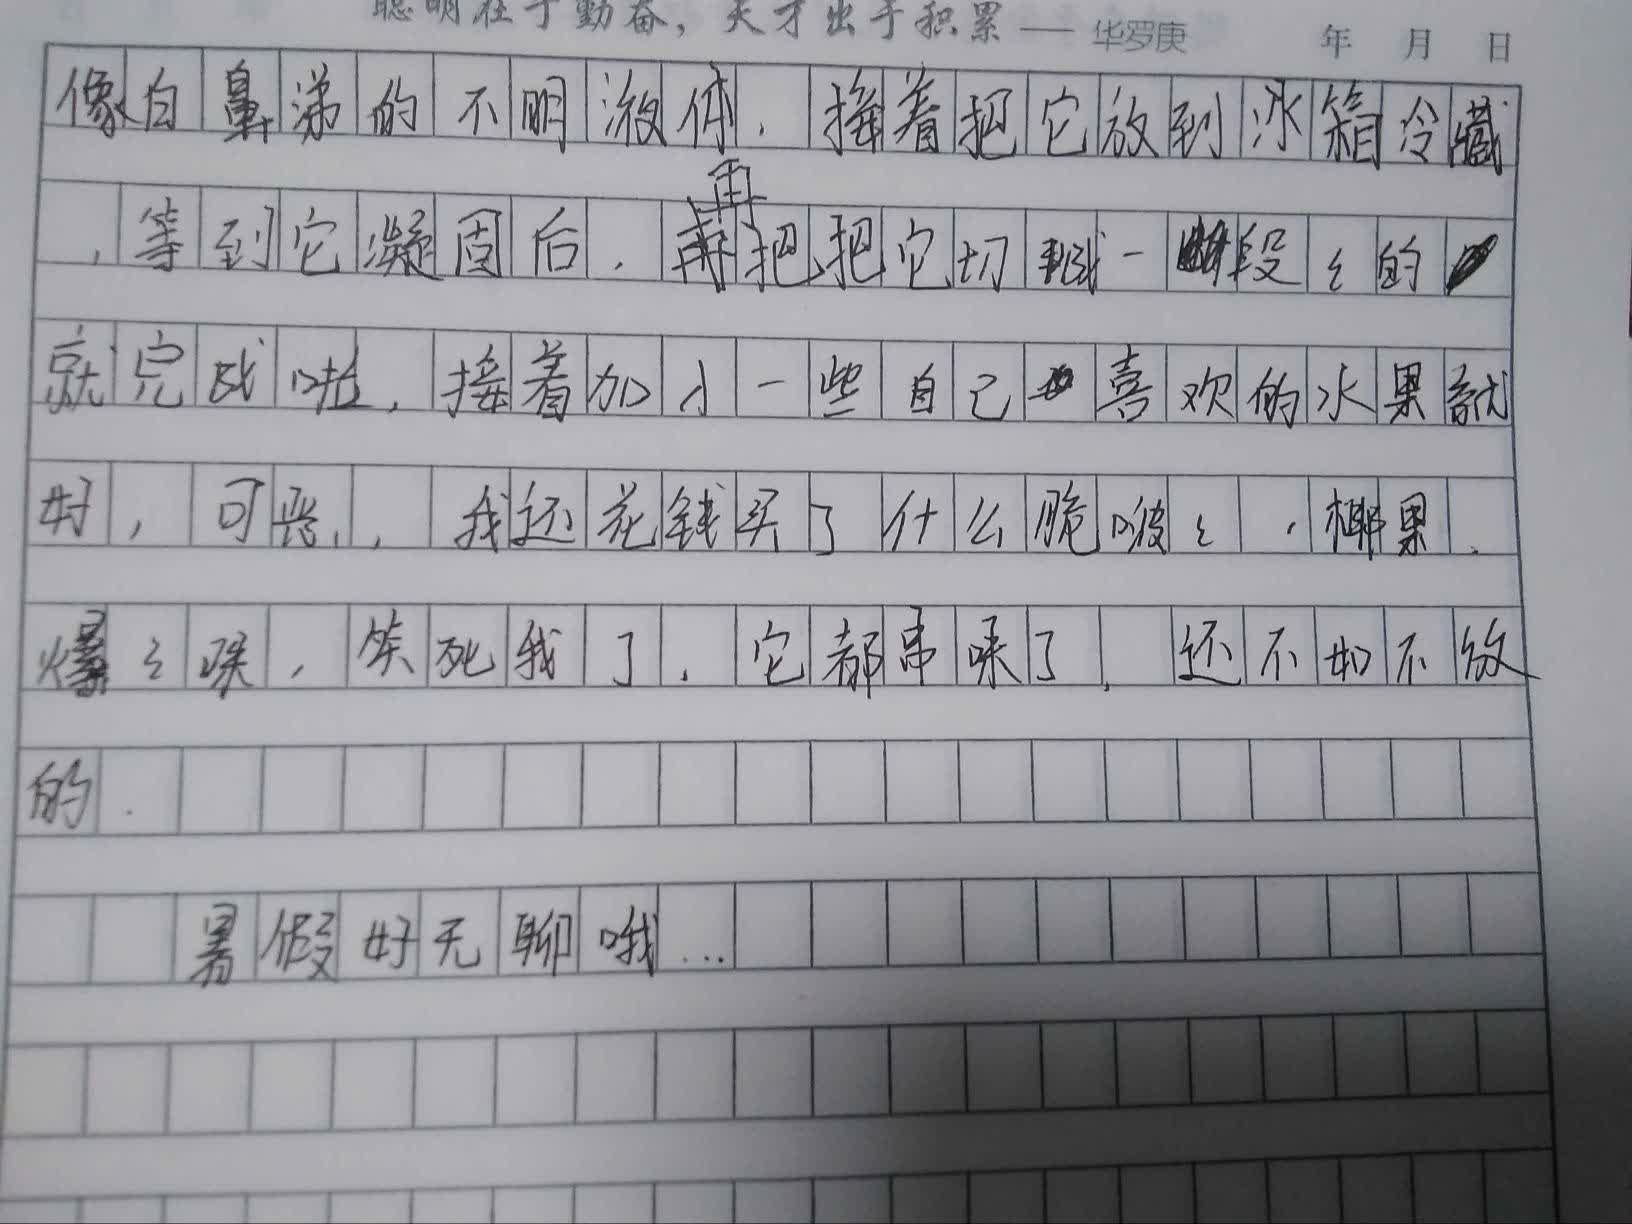 聪明在于勤奋，天才出于积累——华罗庚 年 月 日
像白鼻涕的不明液体，接着把它放到冰箱冷藏
，等到它凝固后，再把把它切成一段々的
就完成啦，接着加入一些自己喜欢的水果就
好，可恶，我还花钱买了什么脆啵々，椰果、
爆々珠，笑死我了，它都串味了，还不如不放
的.
暑假好无聊哦...